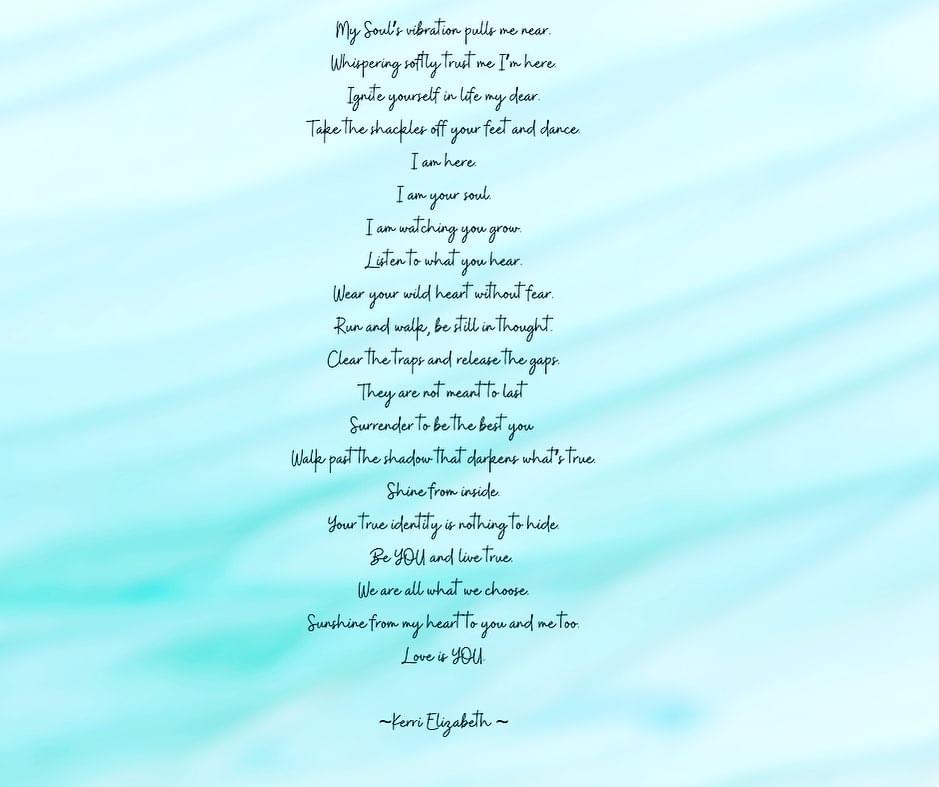 My Soul's vibration pulls me near.
Whispering softly trust me I'm here.
Ignite yourself in life my dear.
Take the shackles off your feet and dance.
I am here.
I am your soul.
I am watching you grow.
Listen to what you hear.
Wear your wild heart without fear.
Run and walk, be still in thought.
Clear the traps and release the gaps.
They are not meant to last
Surrender to be the best you
Walk past the shadow that darkens what's true.
Shine from inside.
Your true identity is nothing to hide.
Be YOU and live true.
We are all what we choose.
Sunshine from my heart to you and me too.
Love is YOU.
~Kerri Elizabeth ~